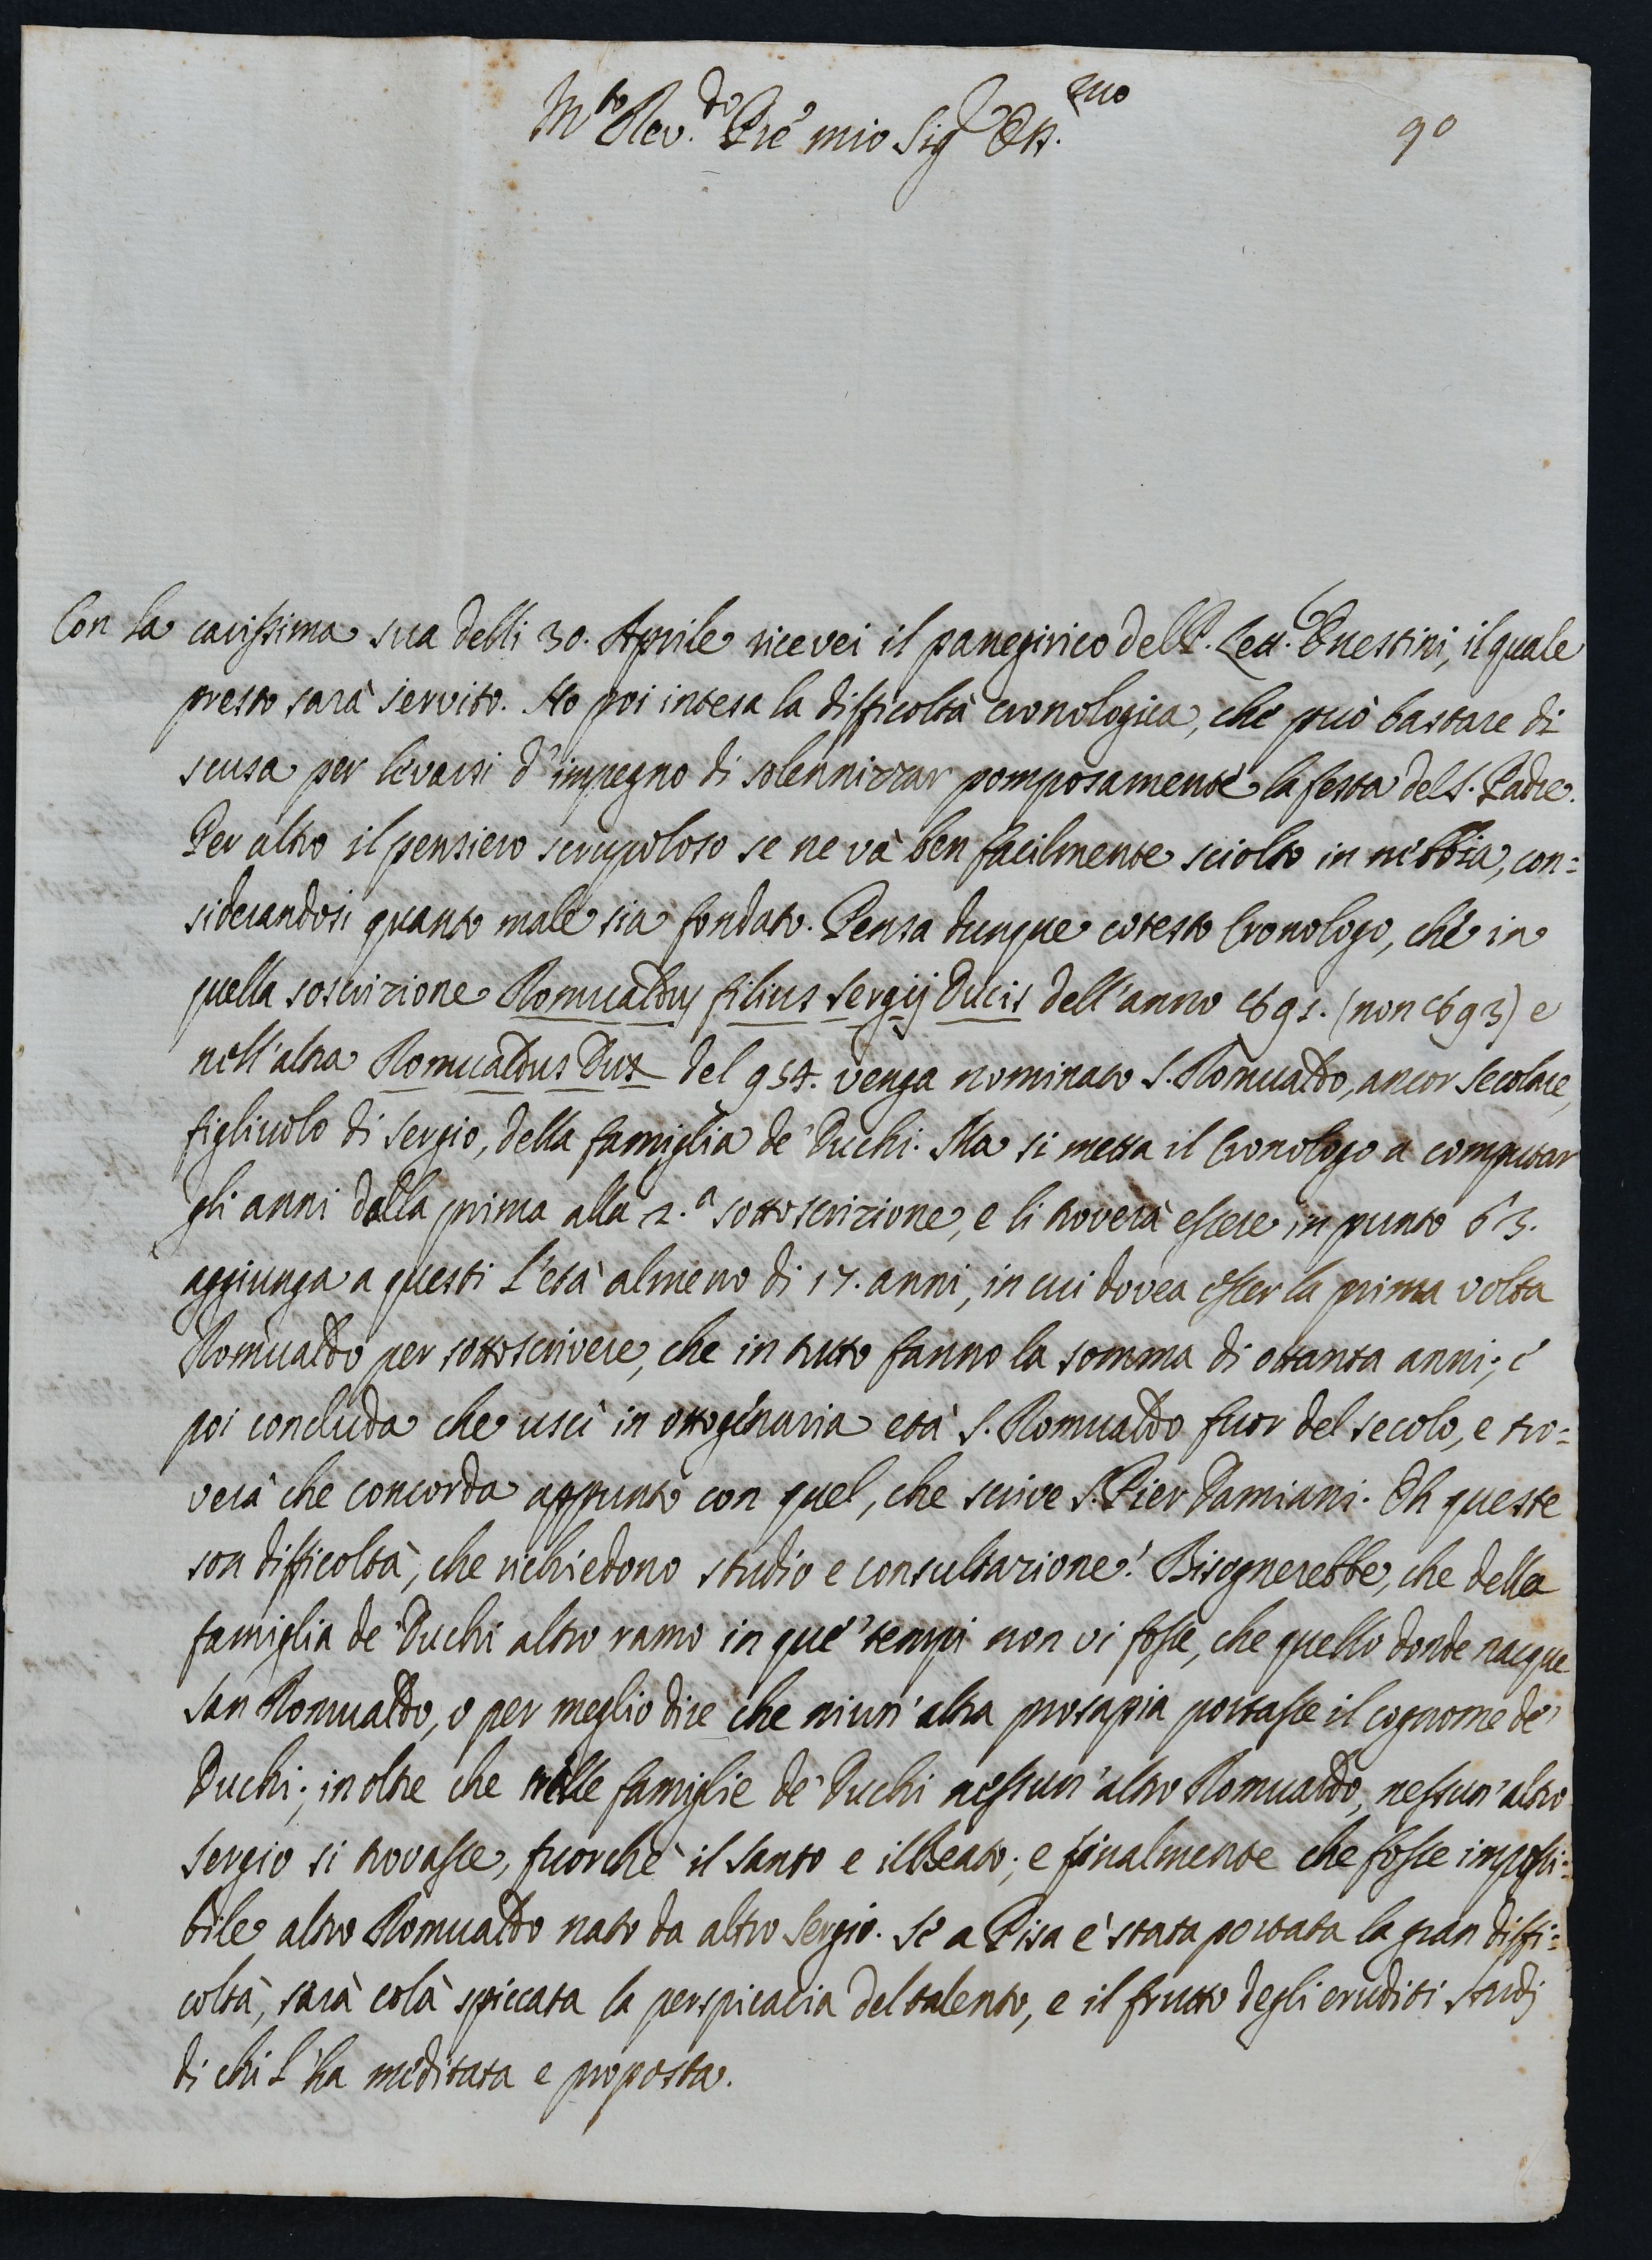 M.to Rev.do P̃re mio Sig.r Oss.mo
90
Con la carissima sua delli 30. Aprile ricevei il panegirico del P. Lett.e Enestini, il quale
presto sarà servito. Ho poi intesa la difficoltà cronologica, che può bastare di
scusa per levarsi d'impegno di solennizzar pomposamente la festa del S. Padre.
Per altro il pensiero scrupoloso se ne và ben facilmente sciolto in nebbia, con=
siderandosi quanto male sia fondato. Pensa dunque cotesto Cronologo, che in
quella soscrizione Romualdus filius Sergij Ducis dell'anno 891. (non 893) e
nell'altra Romualdus Dux del 954. venga nominato S. Romualdo, ancor secolare,
figliuolo di Sergio, della famiglia de' Duchi. Ma si metta il Cronologo a computar
gli anni dalla prima alla 2.a sottoscrizione, e li troverà essere in punto 63.
aggiunga a questi l'età almeno di 17. anni, in cui dovea esser la prima volta
Romualdo per sottoscrivere, che in tutto fanno la somma di ottanta anni; e
poi concluda che uscì in ottogenaria età S. Romualdo fuor del secolo, e tro=
verà che concorda appunto con quel, che scrive S. Pier Damiani. Oh queste
son difficoltà, che richiedono studio e consultazione! Bisognerebbe, che della
famiglia de' Duchi altro ramo in que' tempi non vi fosse, che quello donde nacque
San Romualdo, o per meglio dire che niun'altra prosapia portasse il cognome de'
Duchi; inoltre che nelle famiglie de' Duchi nessun'altro Romualdo, nessun'altro
Sergio si trovasse, fuorchè il Santo e il Beato; e finalmente che fosse impossi=
bile altro Romualdo nato da altro Sergio. Se a Pisa è stata portata la gran diffi=
coltà, sarà colà spiccata la perspicacia del talento, e il frutto degli eruditi studj
di chi l'ha meditata e proposta.